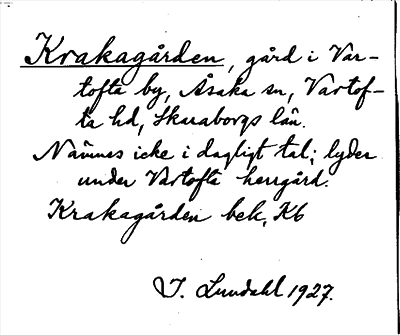 Krakagården, gård i Var-
tofta by, Åsaka sn, Vartof-
ta hd, Skaraborgs län.
Nämnes icke i dagligt tal; lyder
under Vartofta herrgård.
Krakagården bek, K6
I. Lundahl 1927.